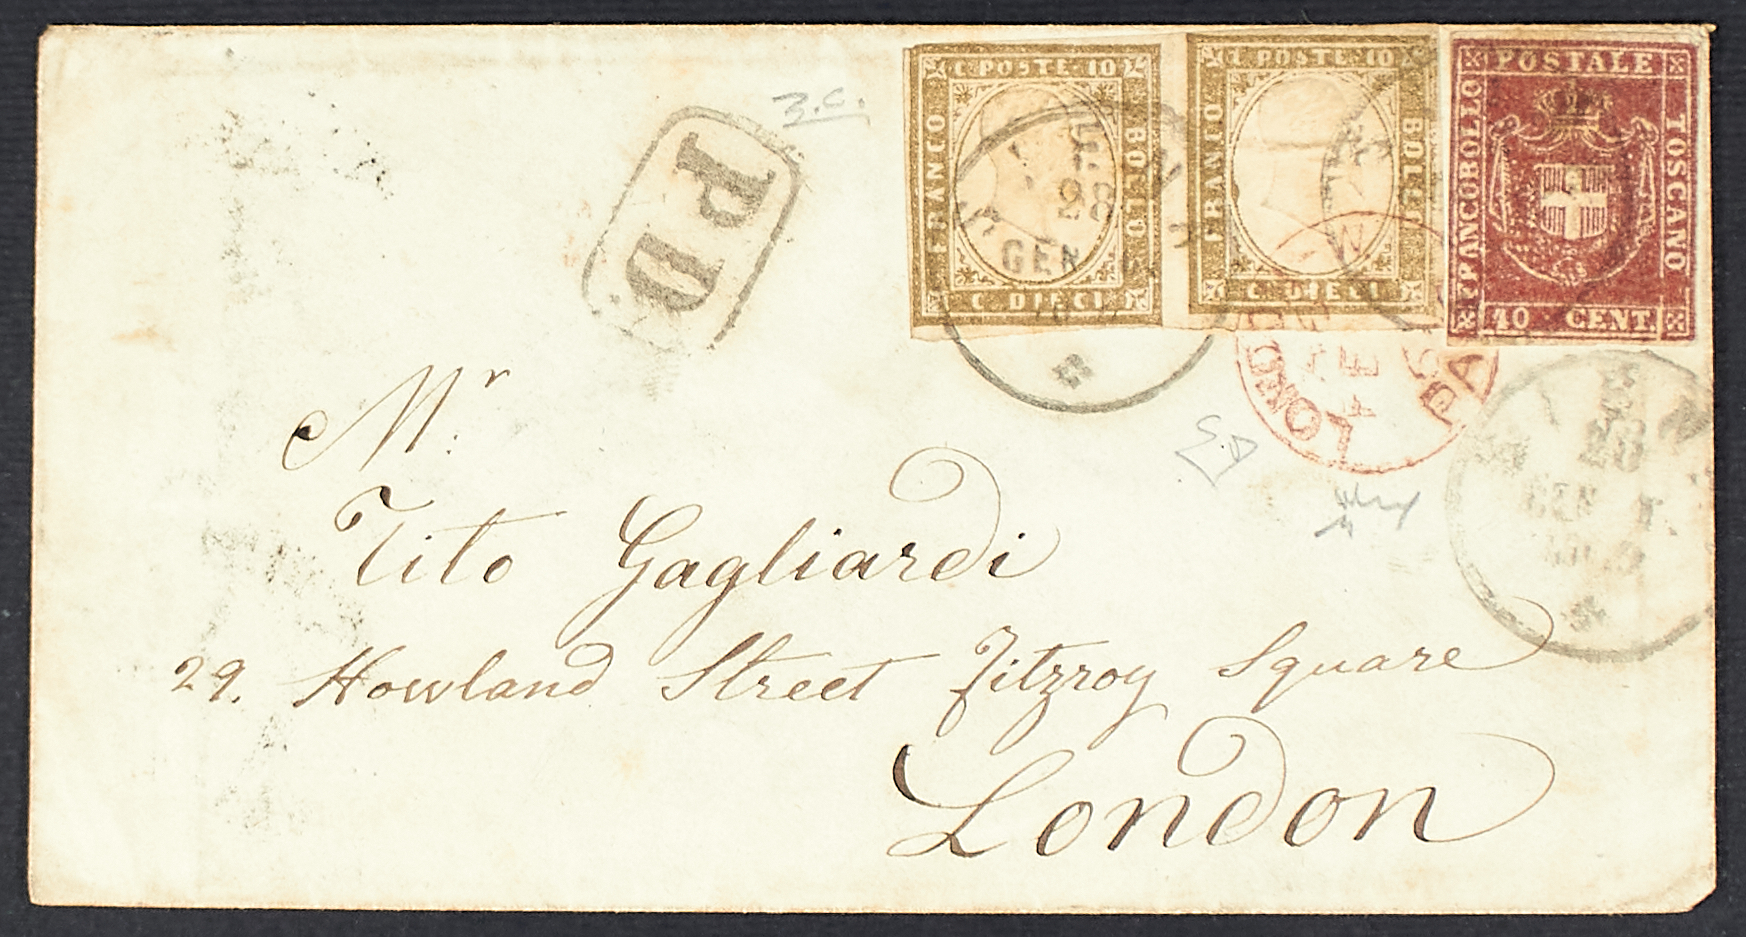 C. POSTE 10
FRANCO
BOLLO
C. DIECI
C. POSTE 10
FRANCO
BOLLO
C. DIECI
POSTALE
FRANCOBOLLO
TOSCANO
40 CENT
PD
GEN
LONDON
PA
28
GEN
Mr.
Tito Gagliardi
29. Howland Street Fitzroy Square
London